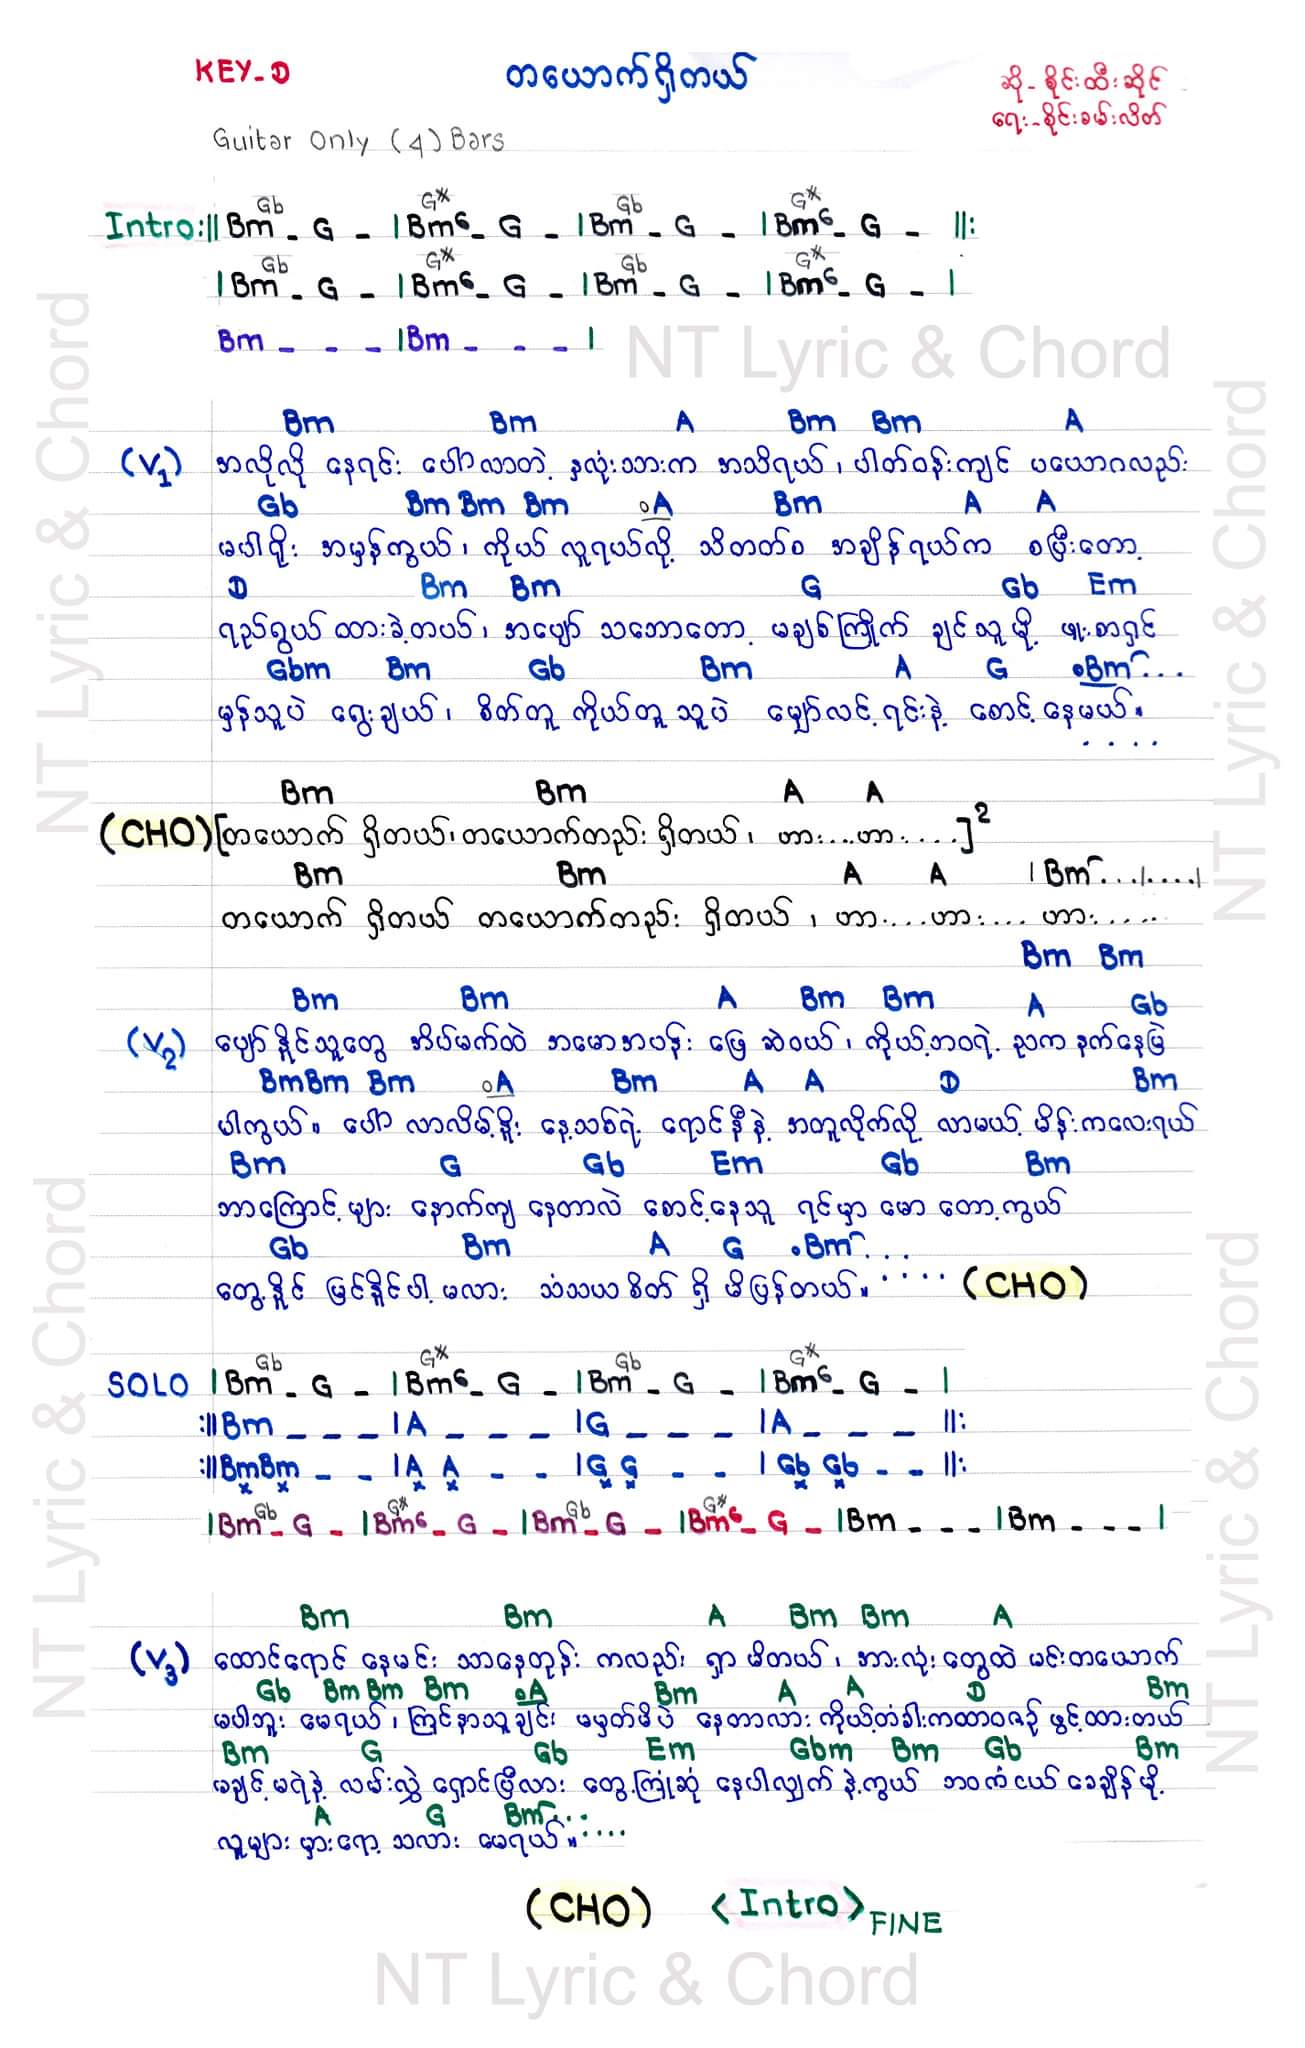 KEY-D
တယောက်ရှိတယ်
ဆို - စိုင်းထီးဆိုင်
ရေး - စိုင်းခမ်းလိတ်
Guitar Only (4) Bars
Gb G* Gb G*
Intro :|| Bm - G - | Bm6 - G - | Bm - G - | Bm6 - G - ||:
Gb G* Gb G*
| Bm - G - | Bm6 - G - | Bm - G - | Bm6 - G - |
Bm - - - | Bm - - - |
NT Lyric & Chord
Bm Bm A Bm Bm A
(V1) အလိုလို နေရင်း ပေါ်လာတဲ့ နှလုံးသားက အသိရယ်၊ ပါတ်ဝန်းကျင် ပယောဂလည်း
Gb Bm Bm Bm A Bm A A
မပါရိုး အမှန်ကွယ်၊ ကိုယ် လူရယ်လို့ သိတတ်စ အချိန်ရယ်က စပြီးတော့
D Bm Bm G Gb Em
ရည်ရွယ် ထားခဲ့တယ်၊ အပျော် သဘောတော့ မချစ်ကြိုက် ချင်သူမို့ ဖူးစာရှင်
Gbm Bm Gb Bm A G Bm ...
မှန်သူပဲ ရွေးချယ်၊ စိတ်တူ ကိုယ်တူ သူပဲ မျှော်လင့်ရင်းနဲ့ စောင့်နေမယ်။
. . . .
Bm Bm A A
(CHO) [တယောက် ရှိတယ်၊ တယောက်တည်း ရှိတယ်၊ ဟား....ဟား.....]2
Bm Bm A A | Bm ...|....|
တယောက် ရှိတယ် တယောက်တည်း ရှိတယ်၊ ဟား....ဟား.... ဟား......
Bm Bm
Bm Bm A Bm Bm A Gb
(V2) ပျော်နိုင်သူတွေ အိပ်မက်ထဲ အမောအပန်း ဖြေ ဆဲဝယ်၊ ကိုယ့်ဘဝရဲ့ ညက နက်နေမြဲ
Bm Bm Bm A Bm A A D Bm
ပါကွယ်။ ပေါ် လာလိမ့်နိုး နေ့သစ်ရဲ့ ရောင်နီနဲ့ အတူလိုက်လို့ လာမယ့် မိန်းကလေးရယ်
Bm G Gb Em Gb Bm
ဘာကြောင့်များ နောက်ကျ နေတာလဲ စောင့်နေသူ ရင်မှာ မော တော့ကွယ်
Gb Bm A G Bm ...
တွေ့နိုင် မြင်နိုင်ပါ့ မလား သံသယစိတ် ရှိ မိပြန်တယ်။ .... (CHO)
Gb G* Gb G*
SOLO | Bm - G - | Bm6 - G - | Bm - G - | Bm6 - G - |
:|| Bm - - - | A - - - | G - - - | A - - - ||:
:|| Bm Bm - - | A A - - | G G - - | Gb Gb - - ||:
x x x x x x x x
Gb G* Gb G*
| Bm - G - | Bm6 - G - | Bm - G - | Bm6 - G - | Bm - - - | Bm - - - |
Bm Bm A Bm Bm A
(V3) ထောင်ရောင် နေမင်း သာနေတုန်း ကလည်း ရှာ မိတယ်၊ အားလုံး တွေထဲ မင်းတယောက်
Gb Bm Bm Bm A Bm A A D Bm
မပါဘူး မေရယ်၊ ကြင်နာသူချင်း မမှတ်မိပဲ နေတာလား ကိုယ့်တံခါးကထာဝစဉ် ဖွင့်ထားတယ်
Bm G Gb Em Gbm Bm Gb Bm
မချင့်မရဲနဲ့ လမ်းလွှဲ ရှောင်ပြီလား တွေ့ကြုံဆုံ နေပါလျှက် နဲ့ကွယ် ဘဝကံငယ် ခေချိန်မို့
A G Bm ...
လူများ မှားရော့ သလား မေရယ်။ ....
(CHO) <Intro> FINE
NT Lyric & Chord
NT Lyric & Chord
NT Lyric & Chord
NT Lyric & Chord
NT Lyric & Chord